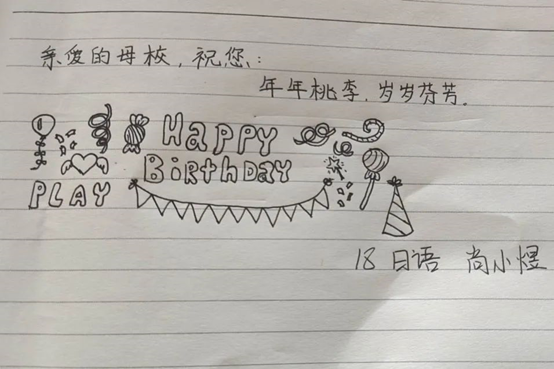 亲爱的母校，祝您：
年年桃李，岁岁芬芳。
Happy
BirthDAY
PLAY
18 日语 尚小煜